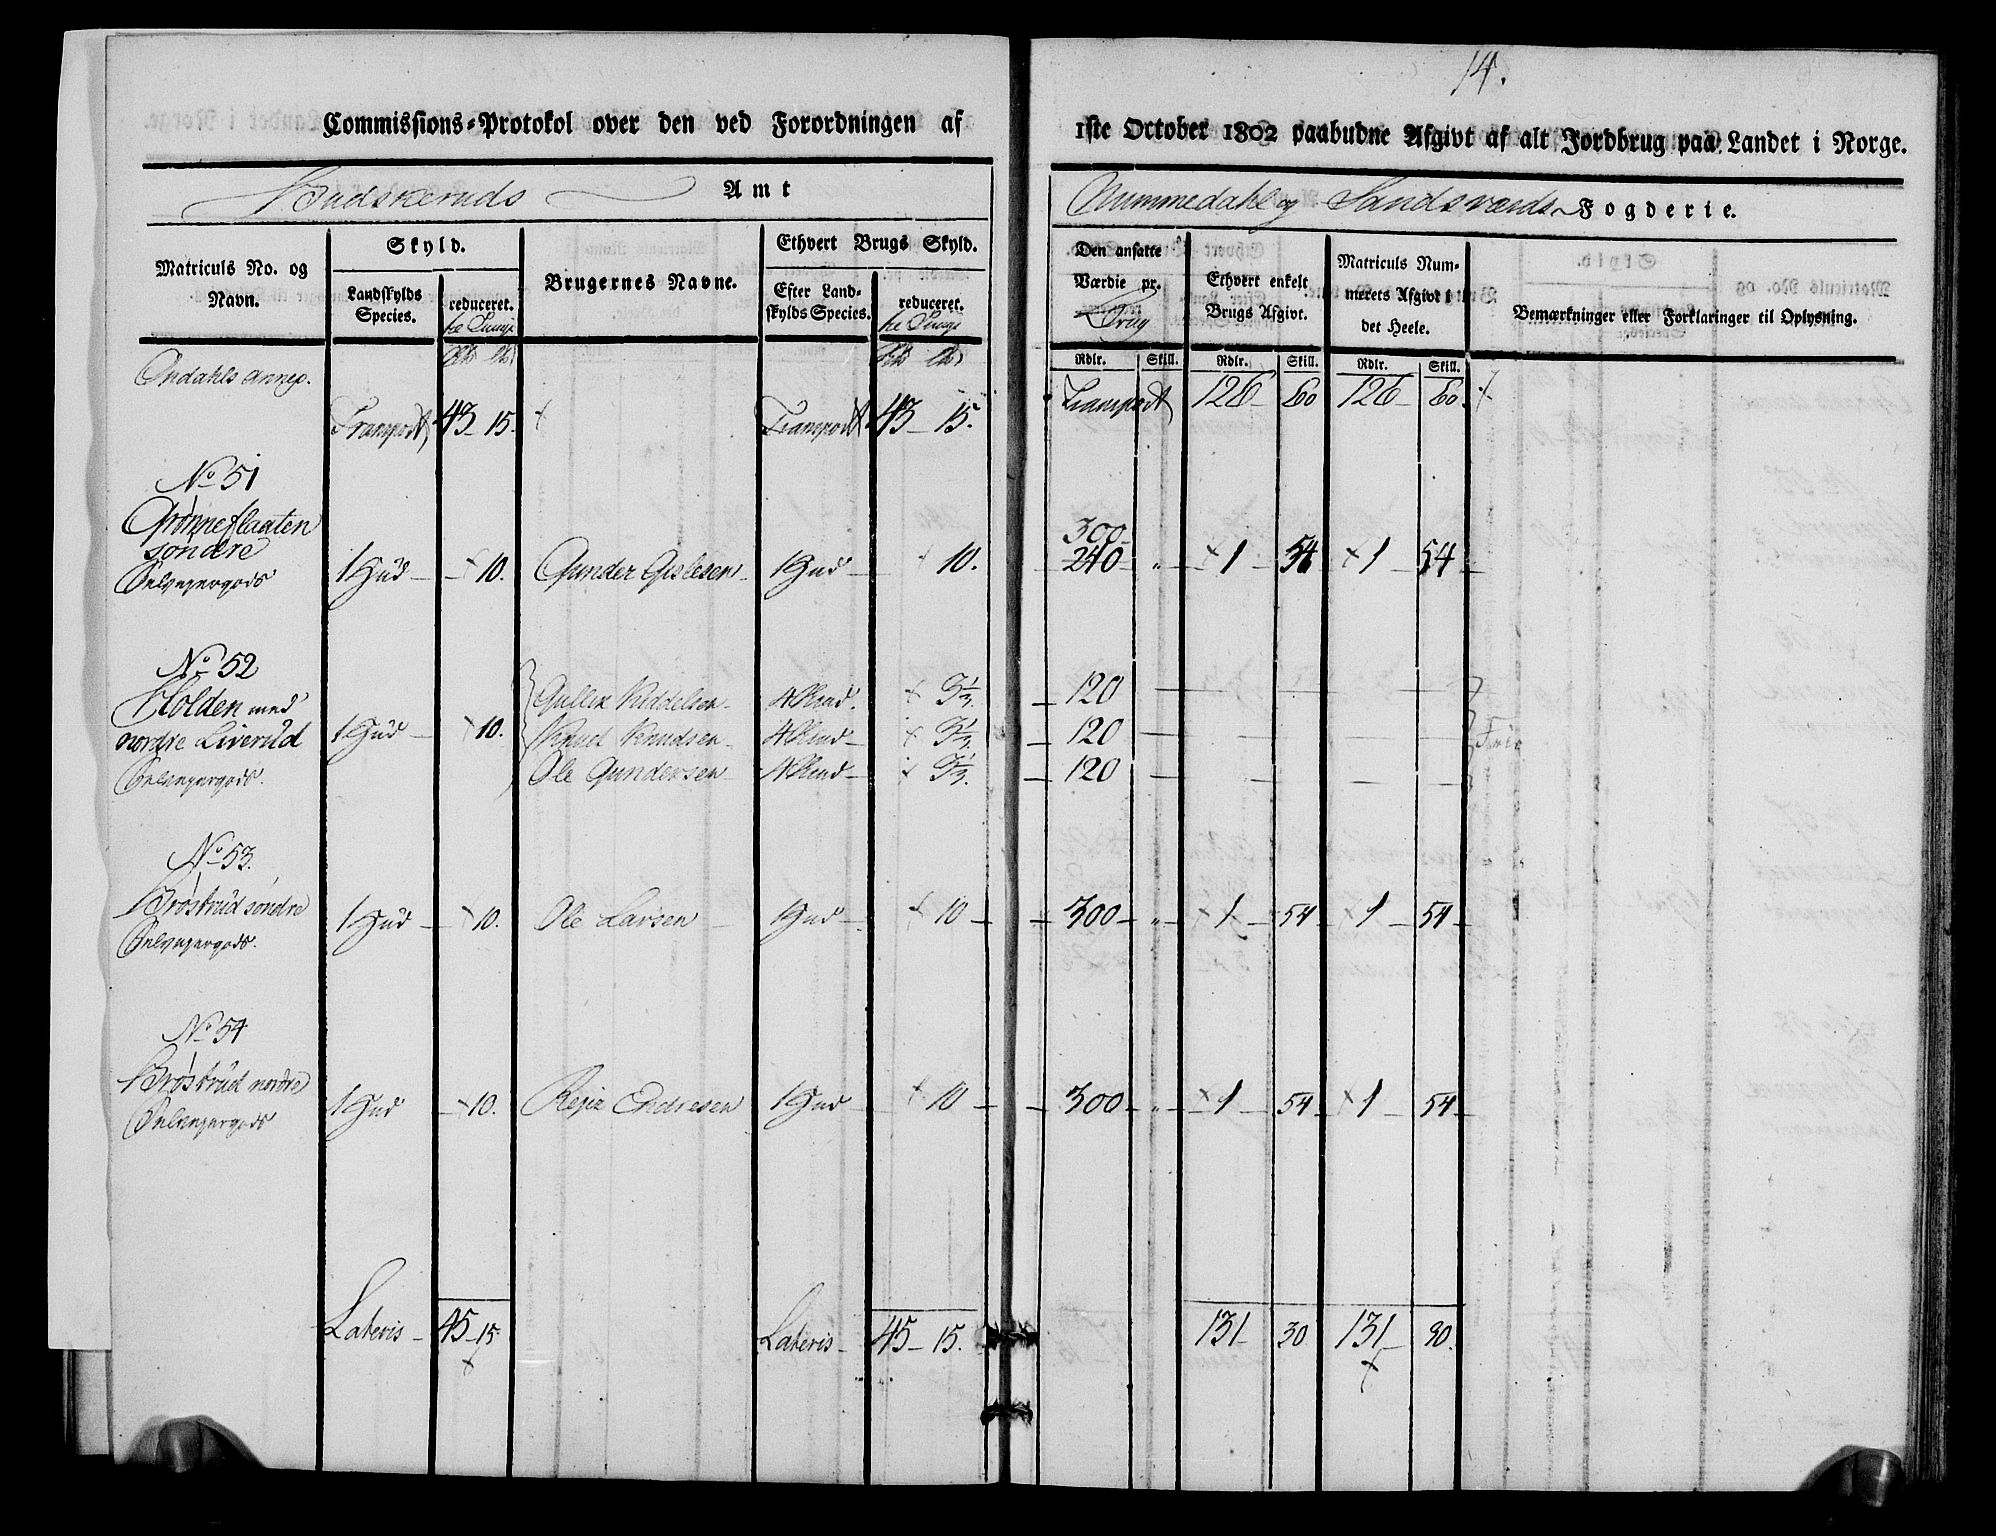 14.
Commissions-Protokol over den ved Forordningen af 1ste October 1802 paabudne Afgivt af alt Jordbrug paa Landet i Norge.
Budskeruds Amt
Nummedahl og Sandsværds Fogderie.
Matriculs No. og Navn.
Skyld.
Landskylds Species.
reduceret.
Brugernes Navne.
Ethvert Brugs Skyld.
Efter Landskylds Species.
reduceret.
Den ansatte Værdie pr.
Ethvert enkelt Brugs Afgivt.
Matriculs Nummerets Afgivt i det Heele.
Bemærkninger eller Forklaringer til Oplysning.
Rdlr. Skill. Rdlr. Skill. Rdlr. Skill.
Ondahls Annex.
Transport 43 - 15. Transport 43 - 15. Transport 126 - 60 126 - 60.
No 51
Grønneflaaten
søndre 300
Selvejergods 1 Hud - 10. Gunder Gislesen 1 Hud - 10. 240 " 1 54 1 54
No 52
Holden med Gullik Kiddelsen 4 Skind. 3 1/3. 120
nordre Liverud 1 Hud 10. Knud Knudsen 4 Skind 3 1/3. 120
Selvejergods. Ole Gundersen 4 Skind 3 1/3. 120
No 53.
Brøstrud søndre 1 Hud 10. Ole Larsen 1 Hud 10 300 " 1 54 1 54
Selvejergods.
No 54
Brøstrud nordre 1 Hud 10. Endresen 1 Hud 10 300 " 1 54 1 54
Selvejergods
Lateris 45 - 15. Lateris 45 - 15. 131 30 131 30.